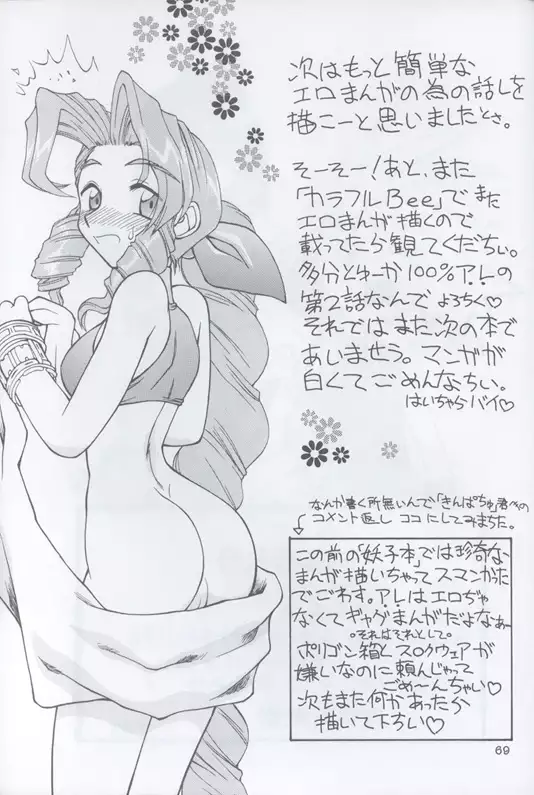 次はもっと簡単な
エロまんがの為の話しを
描こーと思いましたとさ。
そーそー!あと、また
「カラフルBee」でまた
エロまんが描くので
載ってたら観てくだちぃ。
多分とゆーか100%ア.レの
第2話なんでよろちく♡
それではまた次の本で
あいませう。マンガが
白くてごめんなちぃ。
はいちゃらバイ♡
なんか書く所無いんで「きんぱつちゅ」君への
コメント返しココにしてみまちた。
この前の「妖子本」では珍奇な
まんが描いちゃってスマンかた
でごわす。ア.レはエロぢゃ
なくてギャグまんがだよなぁー
。それはそれとして。
ポリゴン箱とスロクウェアが
嫌いなのに頼んじゃって
ごめ〜んちゃい♡
次もまた何かあったら
描いて下ちい♡
69